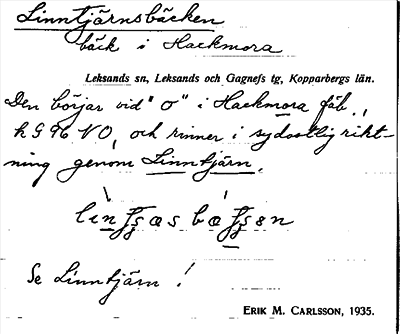 Linntjärnsbäcken
bäck i Hackmora
Leksands sn, Leksands och Gagnefs tg, Kopparbergs län.
Den börjar vid "o" i Hackmora fäb.,
h 9 96 NO, och rinner i sydostlig rikt-
ning genom Linntjärn.
Se Linntjärn!
ERIK M. CARLSSON, 1935.